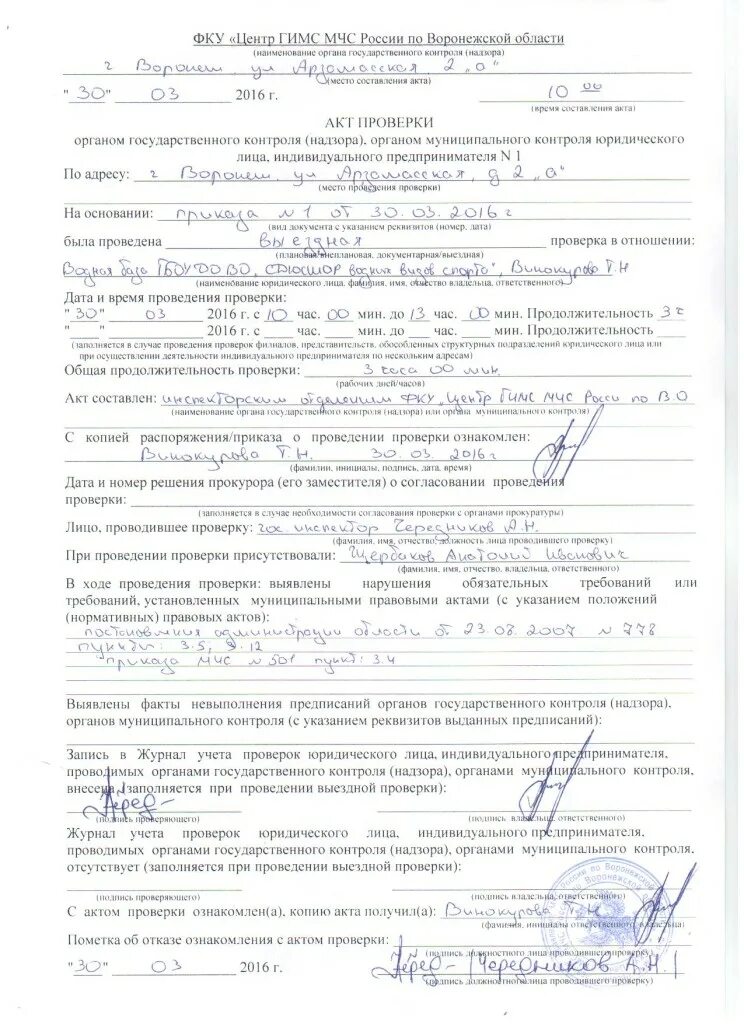 ФКУ «Центр ГИМС МЧС России по Воронежской области
(наименование органа государственного контроля (надзора)
г Воронеж ул Арзамасская 2 „а"
(место составления акта)
"30" 03 2016 г. 10 00
(время составления акта)
АКТ ПРОВЕРКИ
органом государственного контроля (надзора), органом муниципального контроля юридического
лица, индивидуального предпринимателя N 1
По адресу: г Воронеж, ул Арзамасская, д 2 „а"
(место проведения проверки)
На основании: приказа №1 от 30.03.2016 г
(вид документа с указанием реквизитов (номер, дата)
была проведена выездная проверка в отношении:
(плановая/внеплановая, документарная/выездная)
Водная база ГБОУДО ВО, СДЮСШОР водных видов спорта", Винокурова Т.Н
(наименование юридического лица, фамилия, имя, отчество владельца, ответственного)
Дата и время проведения проверки:
"30" 03 2016 г. с 10 час. 00 мин. до 13 час. 00 мин. Продолжительность 3 ч
"____" ____ 2016 г. с ____ час. ____ мин. до ____ час. ____ мин. Продолжительность ____
(заполняется в случае проведения проверки филиалов, представительств, обособленных структурных подразделений юридического лица или
при осуществлении деятельности индивидуального предпринимателя по нескольким адресам)
Общая продолжительность проверки: 3 часа 00 мин.
(рабочих дней/часов)
Акт составлен: инспекторским отделением ФКУ „Центр ГИМС МЧС Росси по В.О
(наименование органа государственного контроля (надзора) или органа муниципального контроля)
С копией распоряжения/приказа о проведении проверки ознакомлен:
Винокурова Т.Н. 30.03.2016 г
(фамилии, инициалы, подпись, дата, время)
Дата и номер решения прокурора (его заместителя) о согласовании проведения
проверки:
(заполняется в случае необходимости согласования проверки с органами прокуратуры)
Лицо, проводившее проверку: гос. инспектор Чередников А.Н.
(фамилия, имя, отчество, должность лица проводившего проверку)
При проведении проверки присутствовали: Щербаков Анатолий Иванович
(фамилия, имя, отчество, владельца, ответственного)
В ходе проведения проверки: выявлены нарушения обязательных требований или
требований, установленных муниципальными правовыми актами (с указанием положений
(нормативных) правовых актов):
постановления администрации области от 23.08.2007 №778
пункты: 3.5, 9.12
приказа МЧС №501 пункт: 3.4
Выявлены факты невыполнения предписаний органов государственного контроля (надзора),
органов муниципального контроля (с указанием реквизитов выданных предписаний):
Запись в Журнал учета проверок юридического лица, индивидуального предпринимателя,
проводимых органами государственного контроля (надзора), органами муниципального контроля,
внесена (заполняется при проведении выездной проверки):
(подпись проверяющего) (подпись владельца, ответственного)
Журнал учета проверок юридического лица, индивидуального предпринимателя,
проводимых органами государственного контроля (надзора), органами муниципального контроля,
отсутствует (заполняется при проведении выездной проверки):
(подпись проверяющего) (подпись владельца, ответственного)
С актом проверки ознакомлен(а), копию акта получил(а): Винокурова Т.Н
(фамилия, инициалы ответственного, владельца)
Пометка об отказе ознакомления с актом проверки:
(подпись должностного лица проводившего проверку)
"30" 03 2016 г. Черед- /Чередников А.Н/
(подпись должностного лица проводившего проверку)